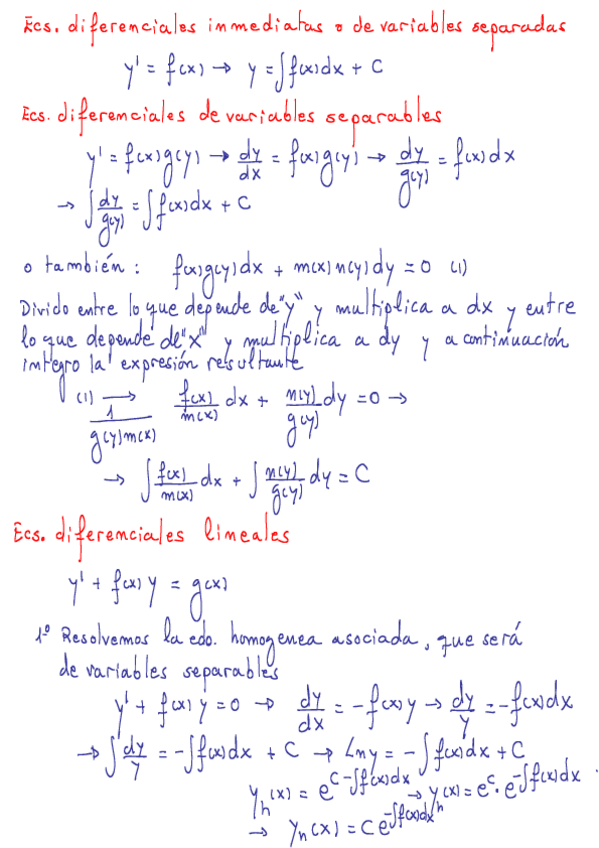 Ecs. diferenciales inmediatas o de variables separadas
y' = f(x) → y = ∫f(x)dx + C
Ecs. diferenciales de variables separables
y' = f(x)g(y) → dy/dx = f(x)g(y) → dy/g(y) = f(x)dx
→ ∫dy/g(y) = ∫f(x)dx + C
o también: f(x)g(y)dx + m(x)n(y)dy = 0 (1)
Divido entre lo que depende de "y" y multiplica a dx y entre
lo que depende de "x" y multiplica a dy y a continuación
integro la expresión resultante
(1) → 1/g(y)m(x) f(x)/m(x) dx + n(y)/g(y) dy = 0 →
→ ∫f(x)/m(x) dx + ∫n(y)/g(y) dy = C
Ecs. diferenciales lineales
y' + f(x)y = g(x)
1º Resolvemos la edo. homogenea asociada, que será
de variables separables
y' + f(x)y = 0 → dy/dx = -f(x)y → dy/y = -f(x)dx
→ ∫dy/y = -∫f(x)dx + C → Lny = -∫f(x)dx + C
y_h(x) = e^(C-∫f(x)dx) → y_h(x) = e^C · e^(-∫f(x)dx)
→ y_h(x) = C e^(-∫f(x)dx)